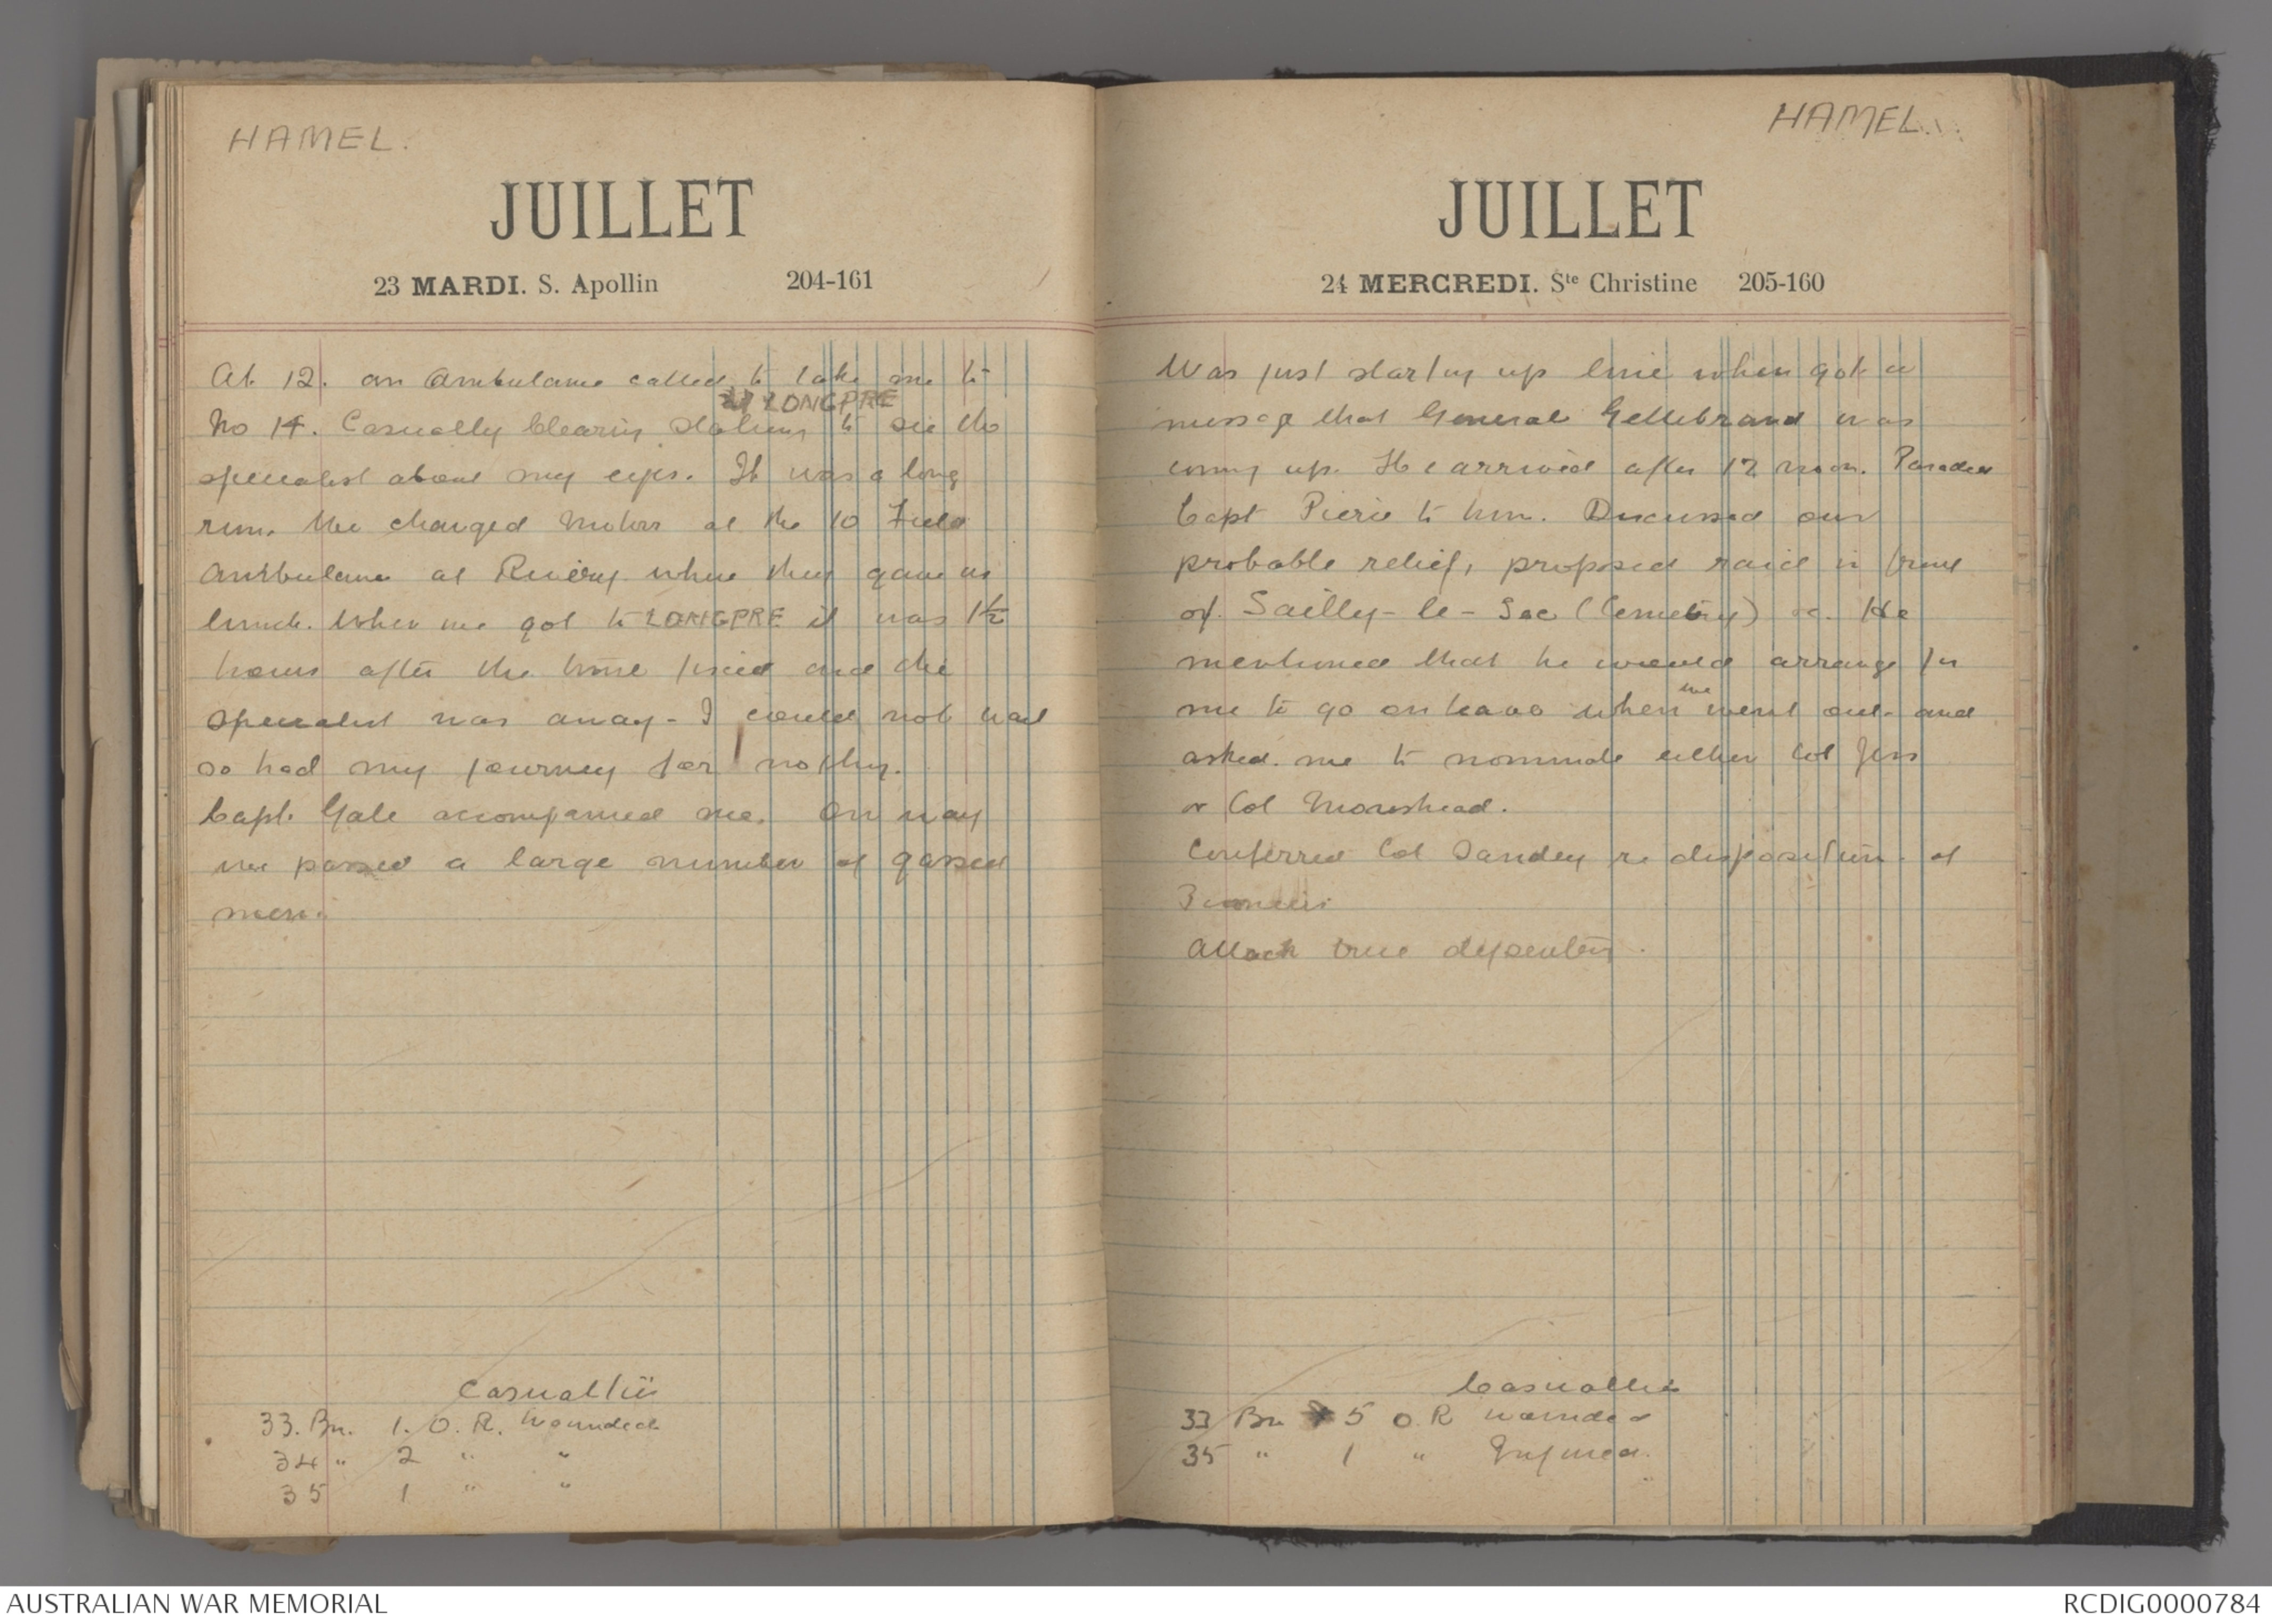 HAMEL.
JUILLET
23 MARDI. S. Apollin 204-161
At 12. an Ambulance called to take me to
at LONGPRE
No 14. Casualty Clearing Station to see the
specialist about my eyes. It was a long
run. We changed motors at the 10 Field
Ambulance at Rivery where they gave us
lunch. When we got to LONGPRE it was 1½
hours after the time fixed and the
specialist was away - I could not wait
so had my journey for nothing.
Capt. Gale accompanied me. On way
we passed a large number of gassed
men.
Casualties
33. Bn. 1. O. R. Wounded
34 " 2 " "
35 1 " "
HAMEL.
JUILLET
24 MERCREDI. Ste Christine 205-160
Was just starting up line when got a
message that General Gellibrand was
coming up. He arrived after 12 noon. Paraded
Capt Pierie to him. Discussed our
probable relief, proposed raid in front
of. Sailly-le-Sec (Cemetery) &c. He
mentioned that he would arrange for
we
me to go on leave when went out and
asked me to nominate either Col Jess
or Col Morshead.
Conferred Col Sandey re disposition of
Pioneers
Attack true
Casualties
33 Bn 5 O R wounded
35 " 1 " Injured.
AUSTRALIAN WAR MEMORIAL
RCDIG0000784